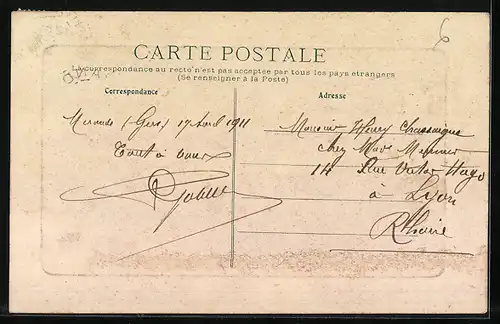 6
CARTE POSTALE
La correspondance au recto n'est pas acceptée par tous les pays etrangers
(Se renseigner à la Poste)
Correspondance
Adresse
Mirande (Gers) 17 Avril 1911
Tout à vous
Monsieur Henry Chassaigne
chez Mme
14 Rue Victor Hugo
à Lyon
Rhône